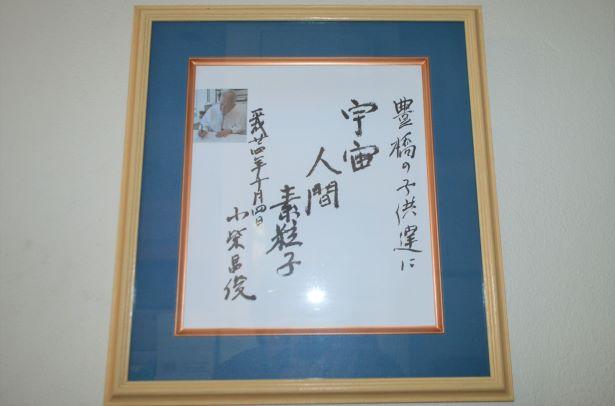 豊橋の子供達に
宇宙
人間
素粒子
平成廿四年十月四日
小柴昌俊